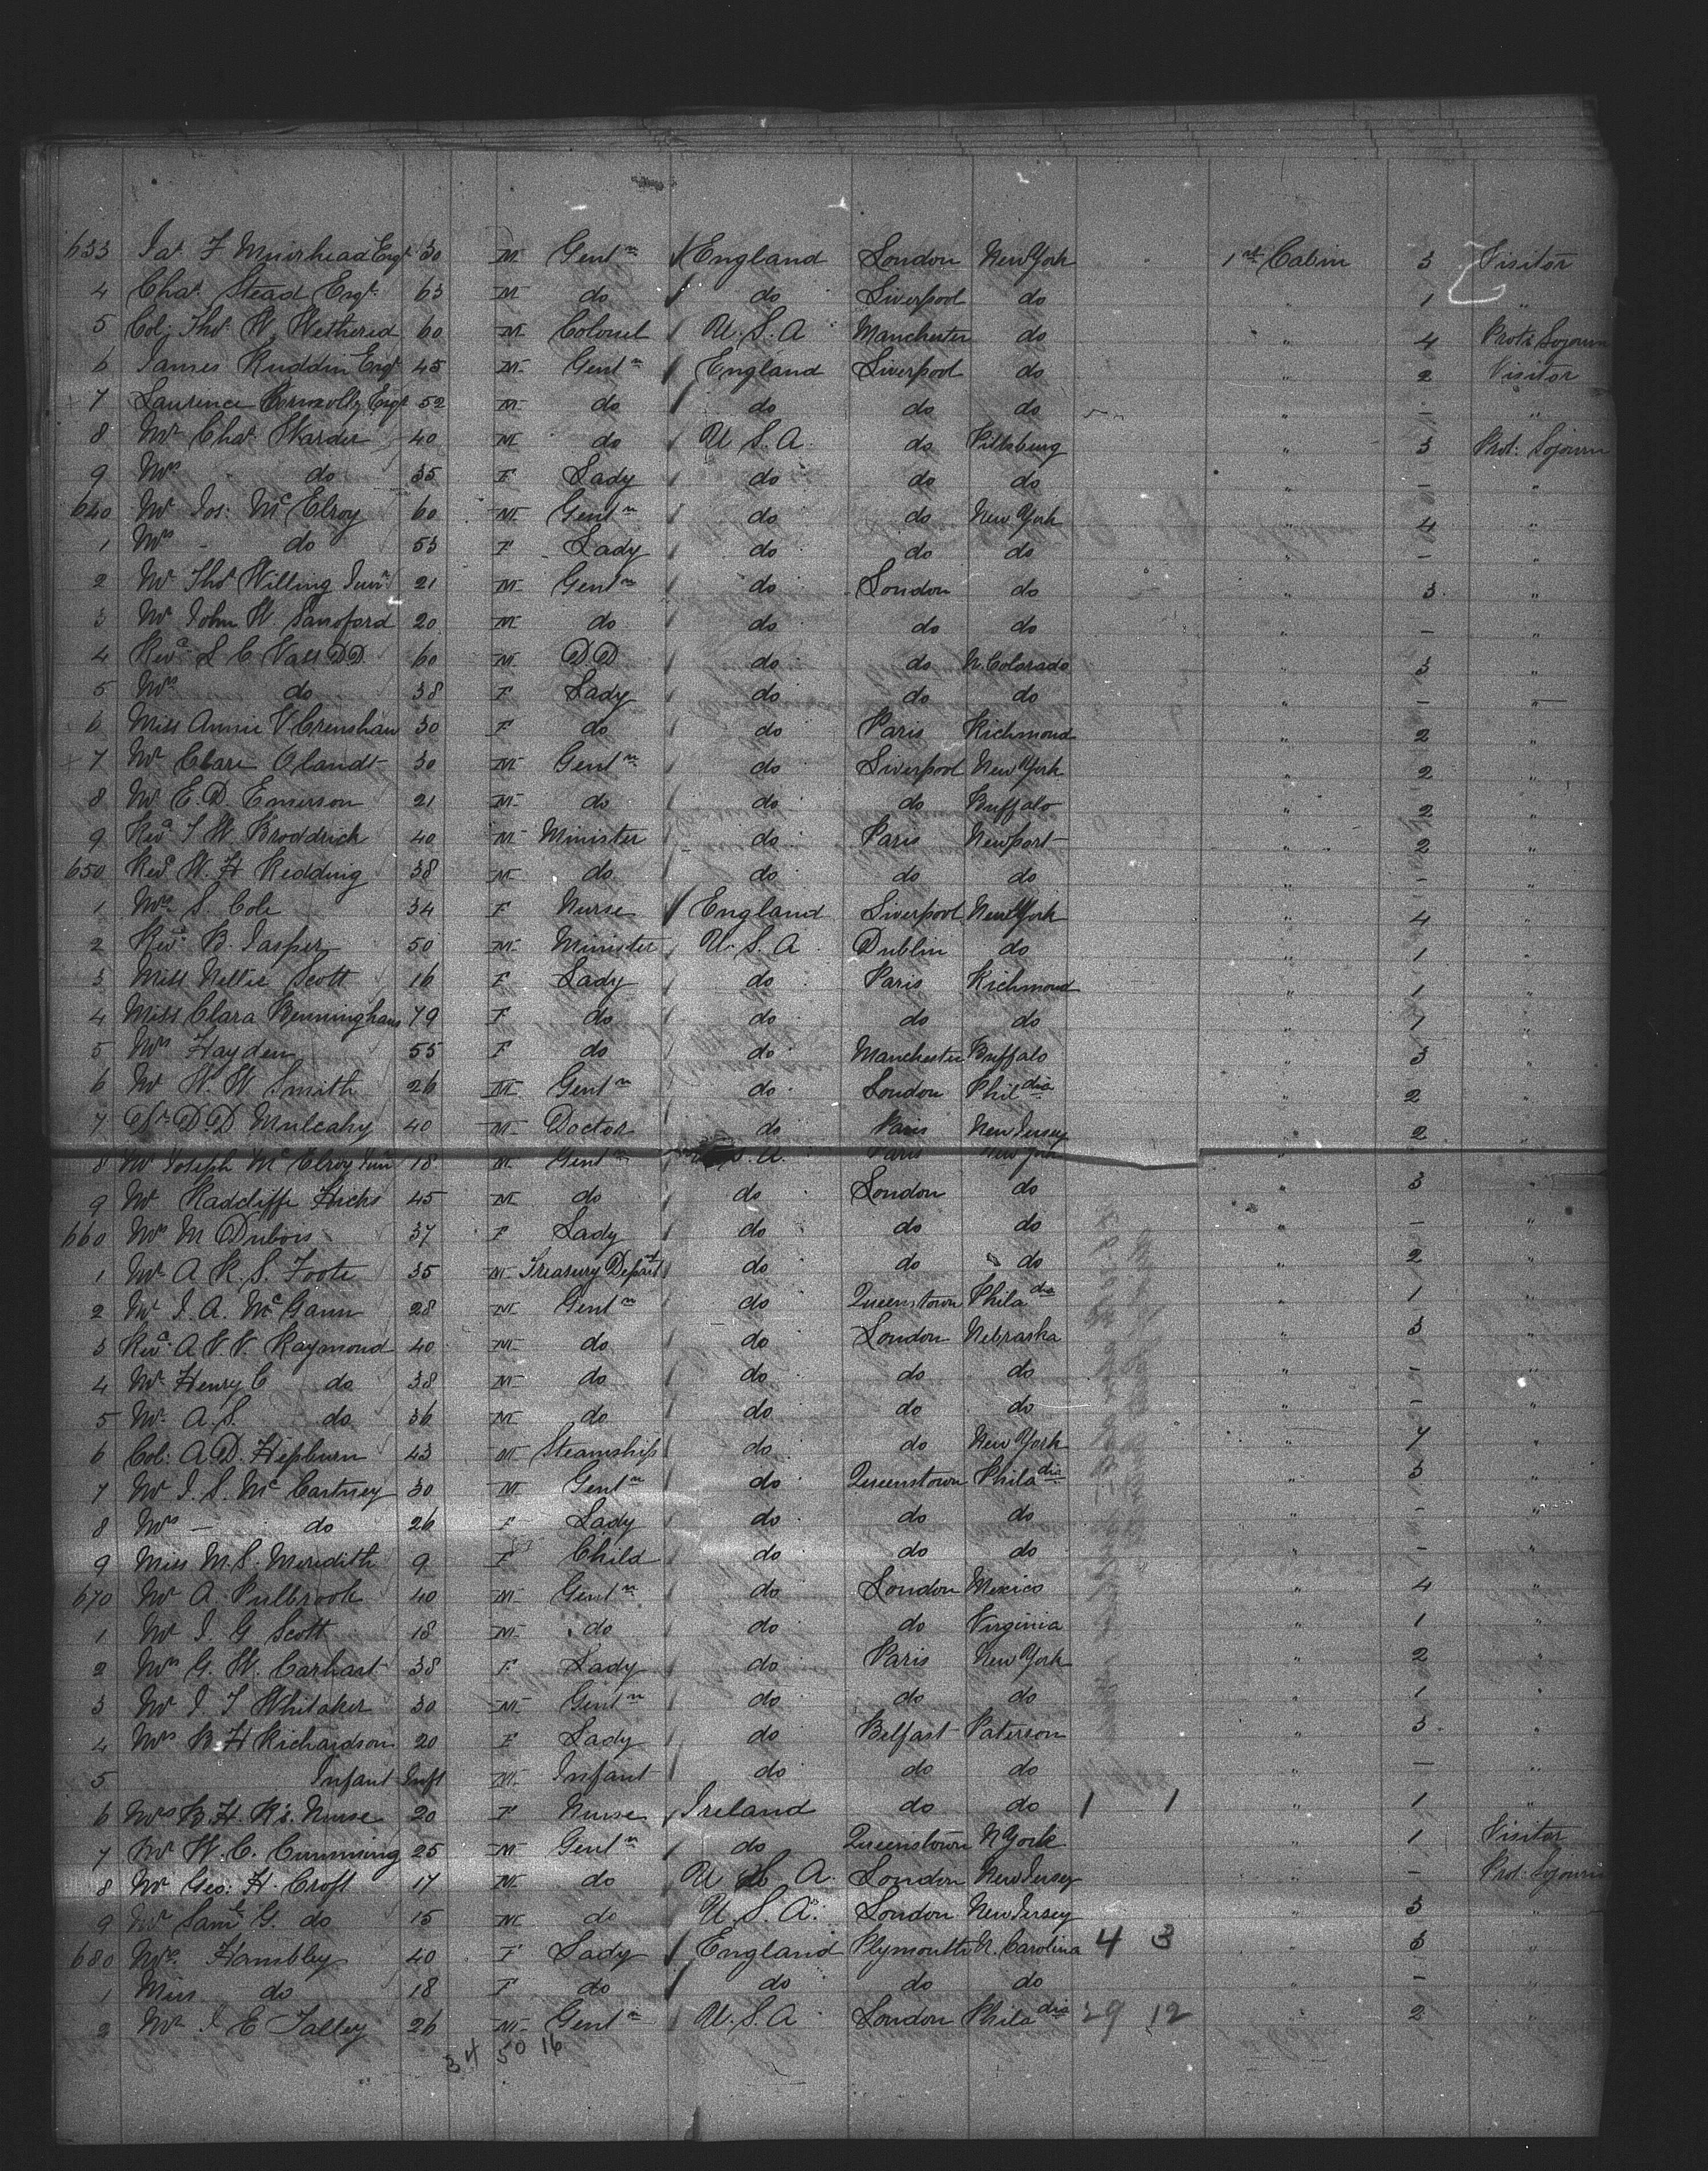 633 Jas. F Muirhead Esqr 30 M Gentn England London New York 1st Cabin 3 Visitor
4 Chas. Stead Esqr. 63 M do do Liverpool do " 1 "
5 Col: Thos. W. Wethered 60 M Colonel U.S.A Manchester do " 4 Prot: Sojourn
6 James Ruddin Esqr 45 M Gentn England Liverpool do " 2 Visitor
7 Laurence Connolly Esqr 52 M do do do do " - "
8 Mr Chas. Warder 40 M do U S. A. do Pittsburg " 3 Prot: Sojourn
9 Mrs do 35 F Lady do do do " - "
640 Mr Jos: Mc Elroy 60 M Gentn do do New York " 4 "
1 Mrs - do 53 F Lady do do do " - "
2 Mr Thos Willing Junr 21 M Gentn do London do " 3 "
3 Mr John W. Sanoford 20 M do do do do " - "
4 Revd S C Vass DD 60 M DD do do N. Colorado " 3 "
5 Mrs do 38 F Lady do do do " - "
6 Miss Annie V Crenshaw 30 F do do Paris Richmond " 2 "
7 Mr Clare Olandt 30 M Gentn do Liverpool New York " 2 "
8 Mr E. D. Emerson 21 M do do do Buffalo " 2 "
9 Revd T W. Broddrick 40 M Minister do Paris Newport " 2 "
650 Revd W. H Redding 38 M do do do do " - "
1 Mrs S. Cole 34 F Nurse England Liverpool New York " 4 "
2 Revd B. Jasper 50 M Minister U. S. A Dublin do " 1 "
3 Miss Nellie Scott 16 F Lady do Paris Richmond " 1 "
4 Miss Clara Benninghaus 19 F do do do do " 1 "
5 Mrs Hayden 55 F do do Manchester Buffalo " 3 "
6 Mr W. W Smith 26 M Gentn do London Phildia " 2 "
7 Dr D. D Mulcahy 40 M Doctor do Paris New Jersey " 2 "
8 Mr Joseph Mc Elroy Junr 18 M Gentn U.S.A. Paris New York
9 Mr Radcliffe Hicks 45 M do do London do " 3 "
660 Mrs M Dubois 37 F Lady do do do " - "
1 Mr A. R. S. Foote 35 M Treasury Depart do do do " 2 "
2 Mr J. A. Mc Gann 28 M Gentn do Queenstown Philadia " 1 "
3 Revd A V V. Raymond 40 M do do London Nebraska " 3 "
4 Mr Henry C do 38 M do do do do " - "
5 Mr. A. S. do 36 M do do do do " - "
6 Col: A. D. Hepburn 43 M Steamship do do New York " 7 "
7 Mr J. S. Mc Cartney 30 M Gentn do Queenstown Philadia " 3 "
8 Mrs - do 26 F Lady do do do " - "
9 Miss M. S. Meredith 9 F Child do do do " - "
670 Mr A. Pulbrook 40 M Gentn do London Mexico " 4 "
1 Mr J. G Scott 18 M do do do Virginia " 1 "
2 Mrs G. W. Carhart 38 F Lady do Paris New York " 2 "
3 Mr J. T Whitaker 30 M Gentn do do do " 1 "
4 Mrs B. H Richardson 20 F Lady do Belfast Paterson " 3 "
5 Infant Inft M Infant do do do " - "
6 Mrs B. H. R's. Nurse 20 F Nurse Ireland do do 1 1 " 1 "
7 Mr W. C. Cumming 25 M Gentn do Queenstown N York " 1 Visitor
8 Mr Geo: H. Croft 17 M do U S A. London New Jersey " - Prot: Sojourn
9 Mr Saml G. do 15 M do U. S. A. London New Jersey " 3 "
680 Mrs. Hambley 40 F Lady England Plymouth N. Carolina 4 3 " 3 "
1 Miss do 18 F do do do do " - "
2 Mr J E Talley 26 M Gentn U. S. A London Philadia 29 12 " 2 "
34 50 16